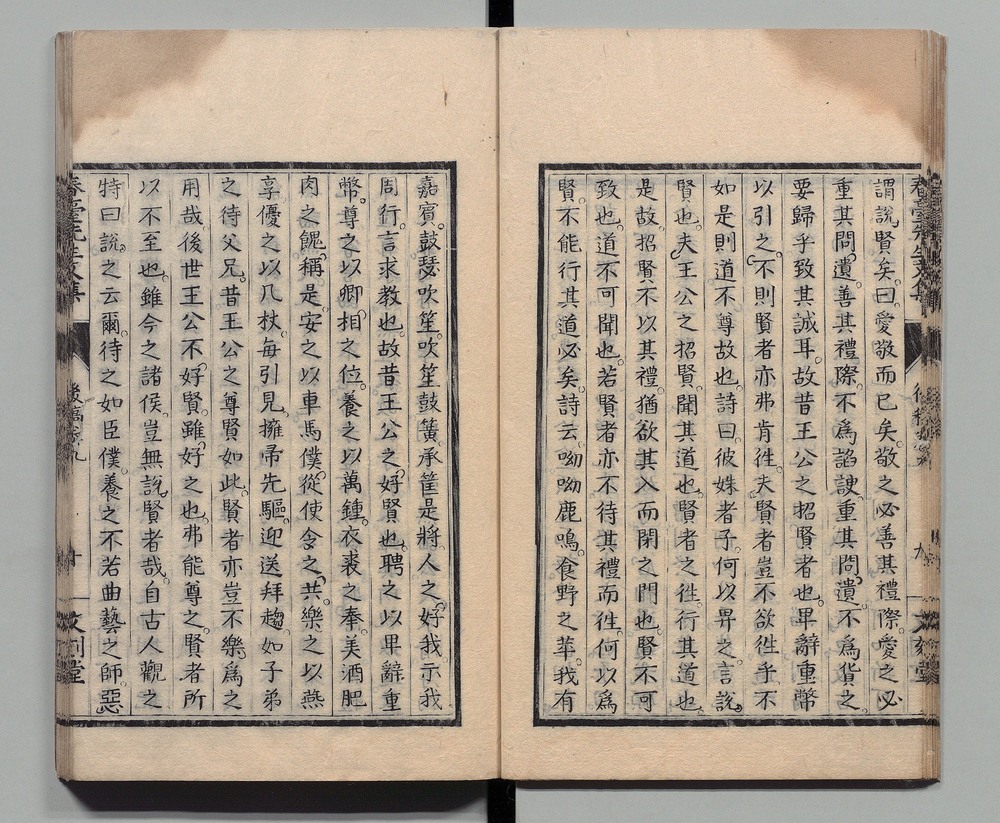 謂說賢矣。曰愛敬而已矣。敬之必善其禮際。愛之必
重其問遺。善其禮際。不爲諂諛。重其問遺。不爲貨之。
要歸乎致其誠耳。故昔王公之招賢者也。卑辭重幣
以引之。不則賢者亦弗肯徃。夫賢者豈不欲徃乎。不
如是則道不尊故也。詩曰。彼姝者子。何以畀之。言說
賢也。夫王公之招賢。聞其道也。賢者之徃。行其道也。
是故招賢不以其禮。猶欲其入而閉之門也。賢不可
致也。道不可聞也。若賢者亦不待其禮而徃。何以爲
賢。不能行其道必矣。詩云。呦呦鹿鳴。食野之苹。我有
嘉賓。鼓瑟吹笙。吹笙鼓簧。承筐是將。人之好我。示我
周行。言求教也。故昔王公之好賢也。聘之以卑辭重
幣。尊之以卿相之位。養之以萬鍾。衣裘之奉。美酒肥
肉之餽。稱是。安之以車馬。僕從使令之共。樂之以燕
享。優之以几杖。每引見。擁帚先驅。迎送拜趨。如子弟
之待父兄。昔王公之尊賢如此。賢者亦豈不樂爲之
用哉。後世王公不好賢。雖好之也。弗能尊之。賢者所
以不至也。雖今之諸侯。豈無說賢者哉。自古人觀之。
特曰說之云爾。待之如臣僕。養之不若曲藝之師。惡
文刻堂
九
文刻堂